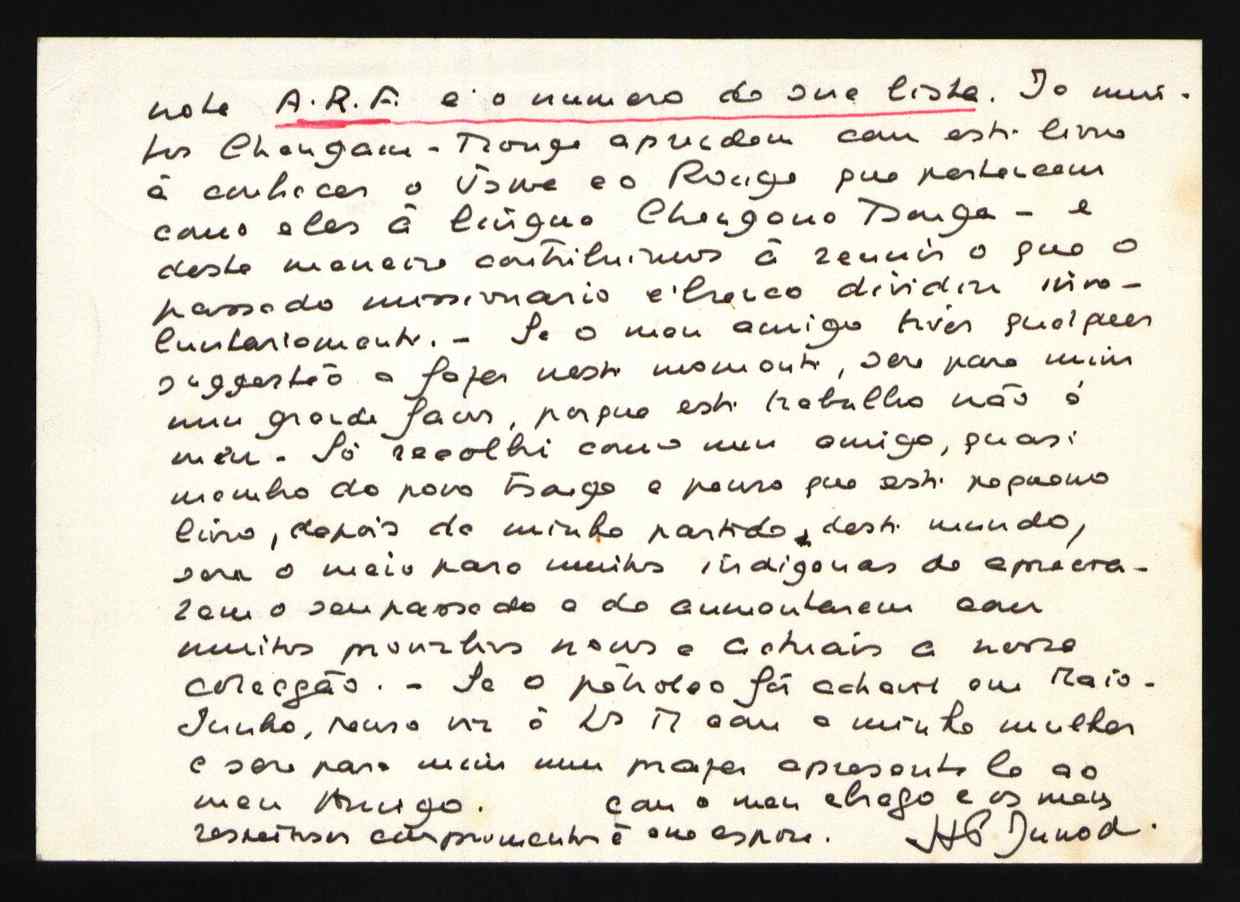 note A.R.F. e' o numero da sua lista. Ja mui-
tos Changana-Tsonga aprendem com este livro
à conhecer o Tswa e o Ronga que pertencem
como eles à lingua Changana Tsonga - e
desta maneira contribuimos à reunir o que o
passado missionario e branco dividiu invo-
luntariamente. - Se o meu amigo tiver qualquer
suggestão a fazer neste momento, sera para mim
um grande favor, porque este trabalho não é
meu. Só recolhi como um amigo, quasi
membro do povo Tsonga e penso que este pequeno
livro, depois da minha partida deste mundo,
sera o meio para muitos indigenas de
o seu passado e de aumentarem com
muitos proverbios novos e actuais a nossa
colecção. - Se o pétroleo fôr em Maio-
Junho, penso vir à L M com a minha mulher
e sera para mim um prazer apresenta-la ao
meu Amigo. Com o meu abraço e os mais
respeitosos cumprimentos à sua esposa. HP Junod.